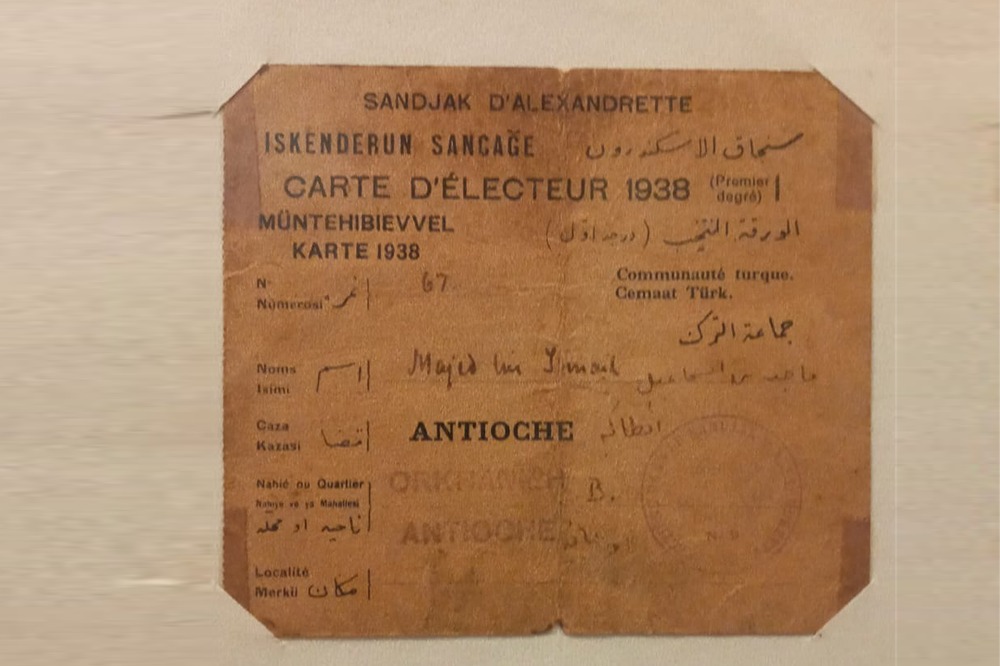 SANDJAK D'ALEXANDRETTE
ISKENDERUN SANCAĞE سنجاق الاسكندرون
CARTE D'ÉLECTEUR 1938 (Premier degré)
MÜNTEHIBIEVVEL الورقة المنتخب (درجه اول)
KARTE 1938
N° 67 Communauté turque.
Nümerosi نمر Cemaat Türk.
جماعة الترك
Noms اسم Majed bin Ismail ماجد بن اسماعيل
Isimi
Caza ANTIOCHE
Kazasi قضا
Nahié ou Quartier ORKHANIEH B.
Nahiye ve ya Mahallesi
ناحيه او محله ANTIOCHE
N. 9
Localité
Merkii مكان